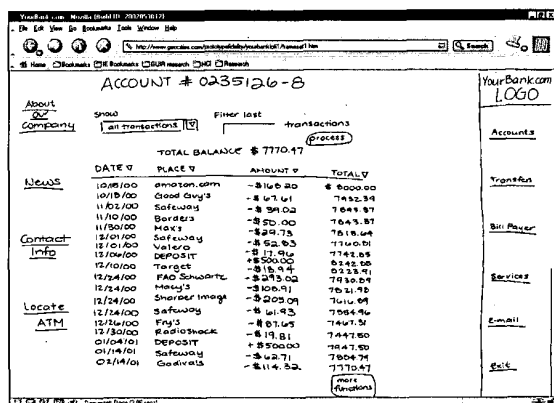 YourBank.com - Mozilla {Build ID: 2002053012}
File Edit View Go Bookmarks Tools Window Help
Search
Home Bookmarks IE Bookmarks GUIR research HCI Research
ACCOUNT # 0235126-8
YourBank.com
LOGO
About
our
company
News
Contact
Info
Locate
ATM
Show
Filter last
all transactions
transactions
process
TOTAL BALANCE $ 7770.47
DATE PLACE AMOUNT TOTAL
10/18/00 amazon.com -$168.20 $ 8000.00
10/18/00 Good Guy's -$ 67.61 7932.39
11/02/00 Safeway -$ 39.02 7893.37
11/10/00 Borders -$ 50.00 7843.37
11/30/00 Max's -$ 29.73 7813.64
12/01/00 Safeway -$ 52.83 7760.81
12/01/00 Valero -$ 17.96 7742.85
12/06/00 DEPOSIT +$500.00 8242.85
12/10/00 Target -$18.94 8223.91
12/24/00 FAO Schwartz -$293.02 7930.89
12/24/00 Macy's -$108.91 7821.98
12/24/00 Sharper Image -$205.09 7616.89
12/24/00 Safeway -$ 61.93 7554.96
12/26/00 Fry's -$ 87.65 7467.31
12/30/00 RadioShack -$ 19.81 7447.50
01/04/01 DEPOSIT +$500.00 7947.50
01/14/01 Safeway -$62.71 7884.79
02/14/01 Godivals -$114.32 7770.47
more
functions
Accounts
Transfers
Bill Payer
Services
E-mail
Exit